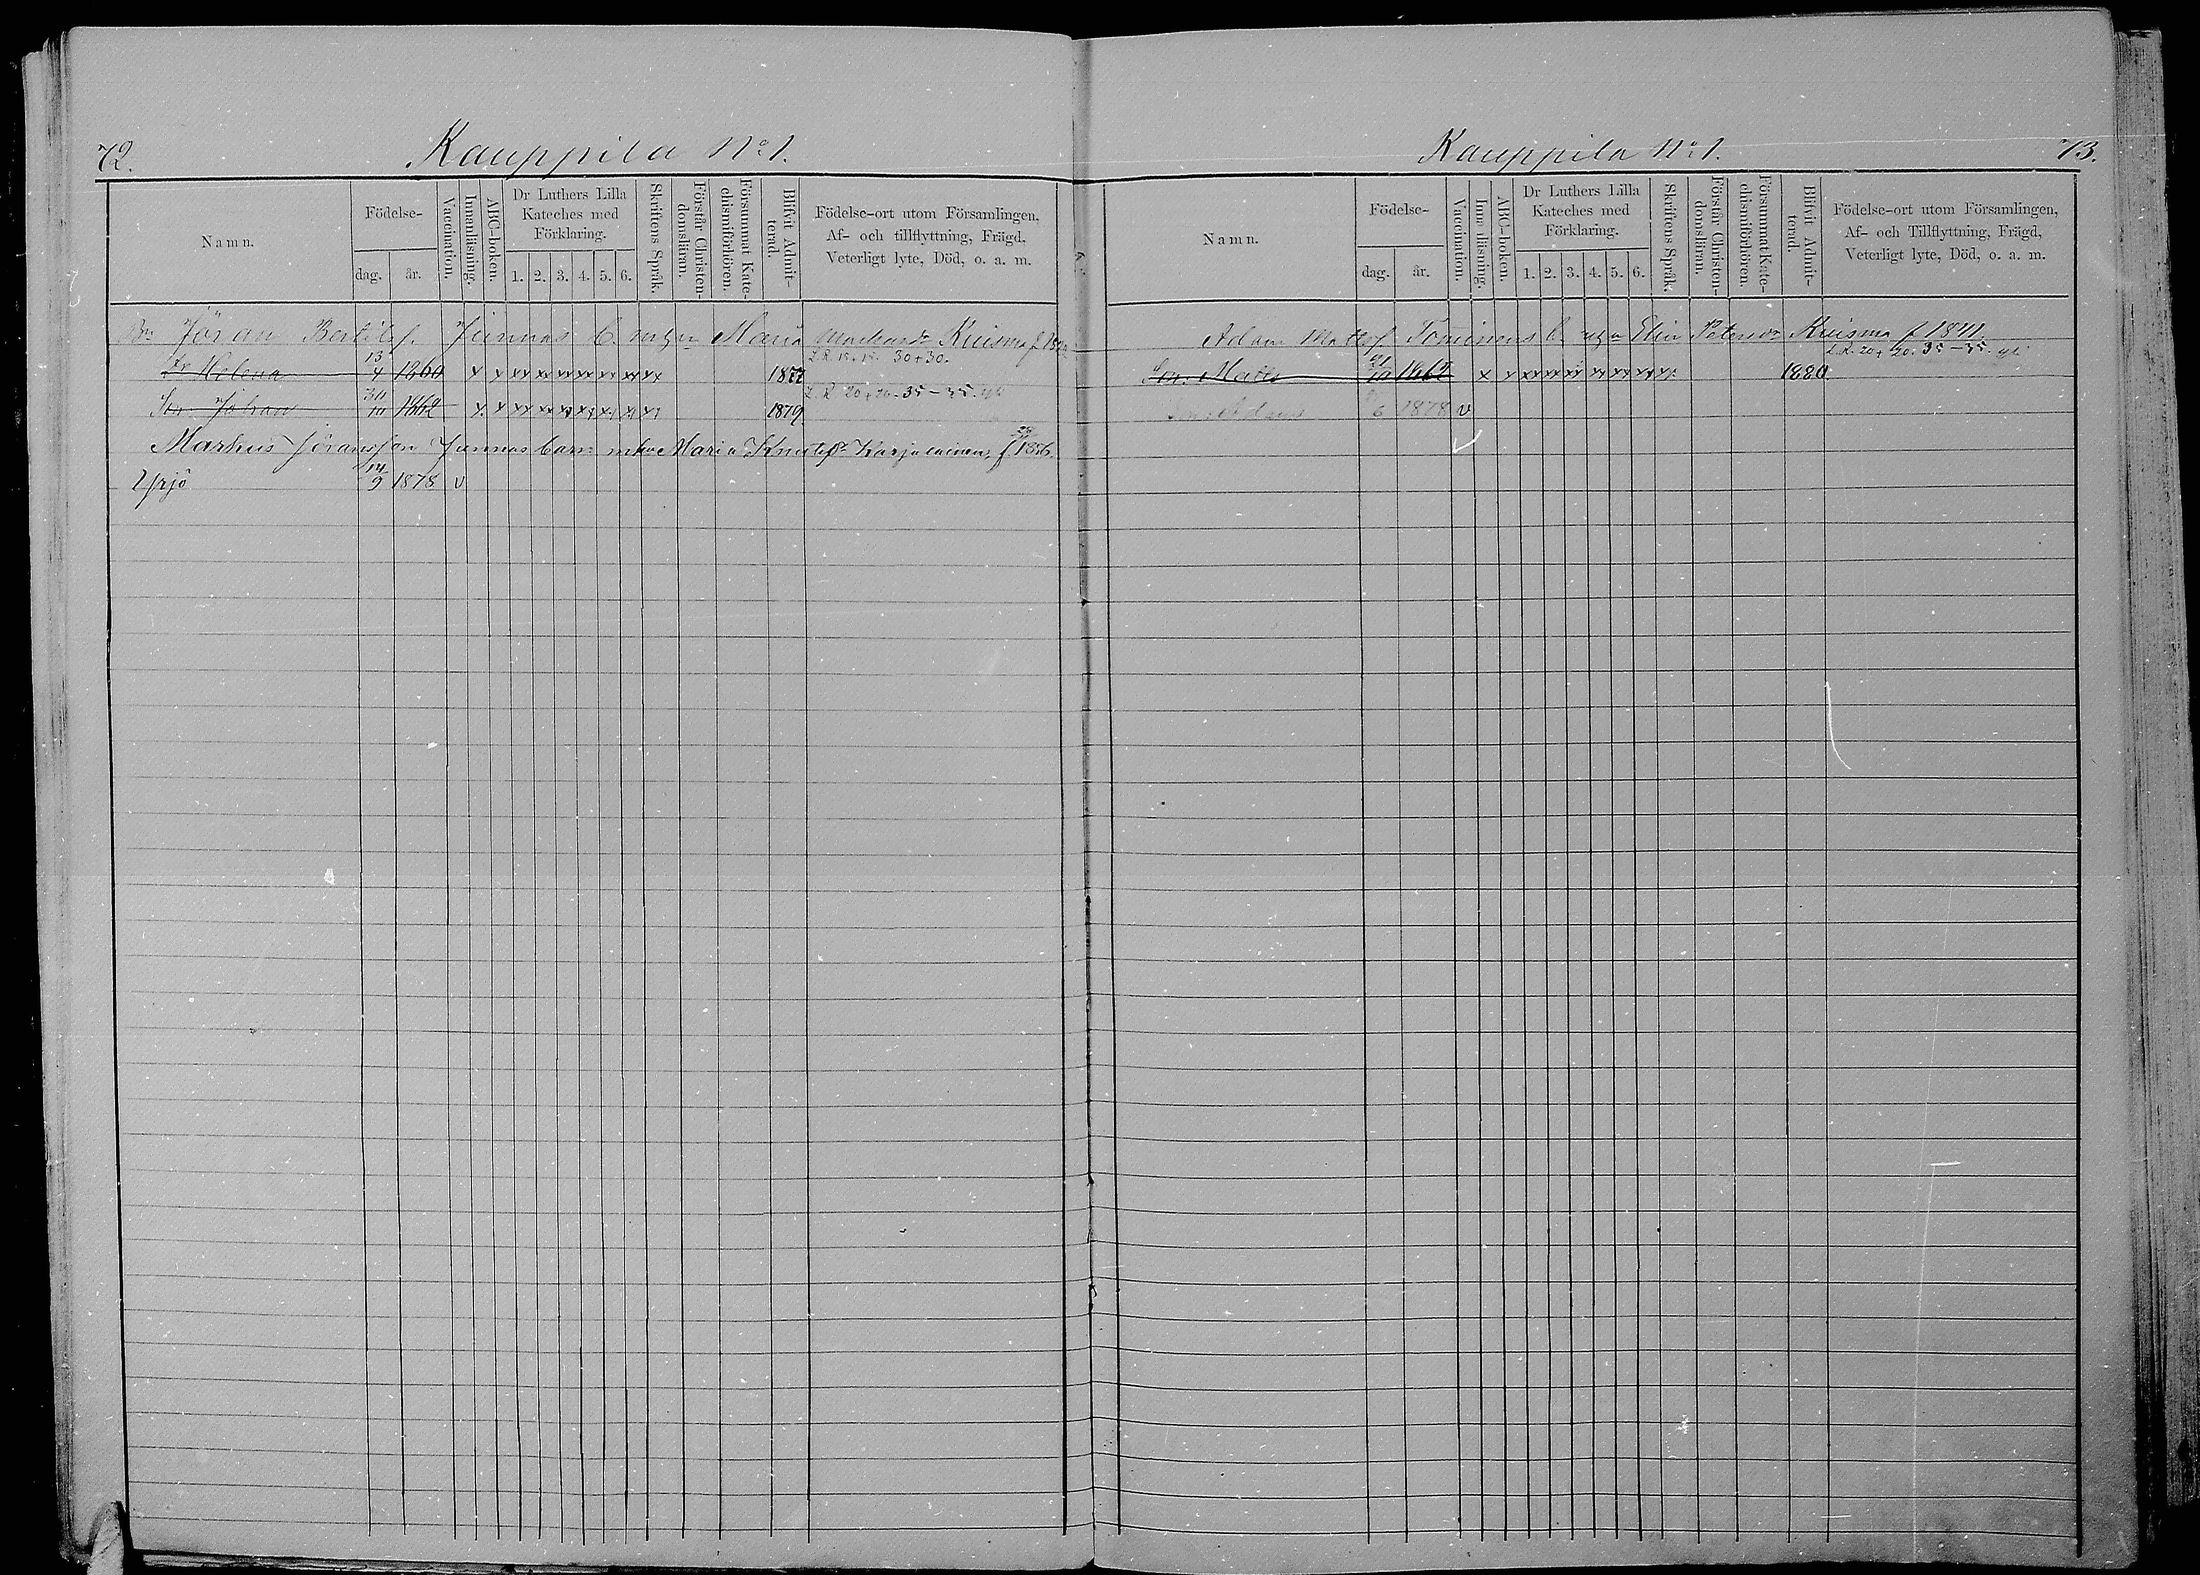 72.
Kauppila No 1.
Namn.
Födelse-
dag. år.
Vaccination.
Innanläsning.
ABC-boken.
Dr Luthers Lilla Kateches med Förklaring.
1. 2. 3. 4. 5. 6.
Skriftens Språk.
Förstår Christendomsläran.
Försummat Katechismiförhören.
Blifvit Admitterad.
Födelse-ort utom Församlingen,
Af- och tillflyttning, Frägd,
Veterligt lyte, Död, o. a. m.
Jöran Bertilsf. Junnas b. m hu Maria Kuisma
30+30.
Dr Helena 13/4 1860 x x xx xx xx xx xx xx xx 1877
20+20. 35-35.
Son Johan 30/10 1862 x x xx xx xx xx xx xx xx 1879
Markus Jöransson Junnas barn m hu Maria Knutsdr Karjalainen f. 1856.
Yrjö 14/9 1878 v
73.
Kauppila No 1.
Namn.
Födelse-
dag. år.
Vaccination.
Innanläsning.
ABC-boken.
Dr Luthers Lilla Kateches med Förklaring.
1. 2. 3. 4. 5. 6.
Skriftens Språk.
Förstår Christendomsläran.
Försummat Katechismiförhören.
Blifvit Admitterad.
Födelse-ort utom Församlingen,
Af- och Tillflyttning, Frägd,
Veterligt lyte, Död, o. a. m.
Adam Mattsf Tominens b. Elin Petersdr Kuisma f 1841
20+20. 35-35.
Son Matts 21/10 x x xx xx xx xx xx xx xx 1880
Son Adam 6 1878 v